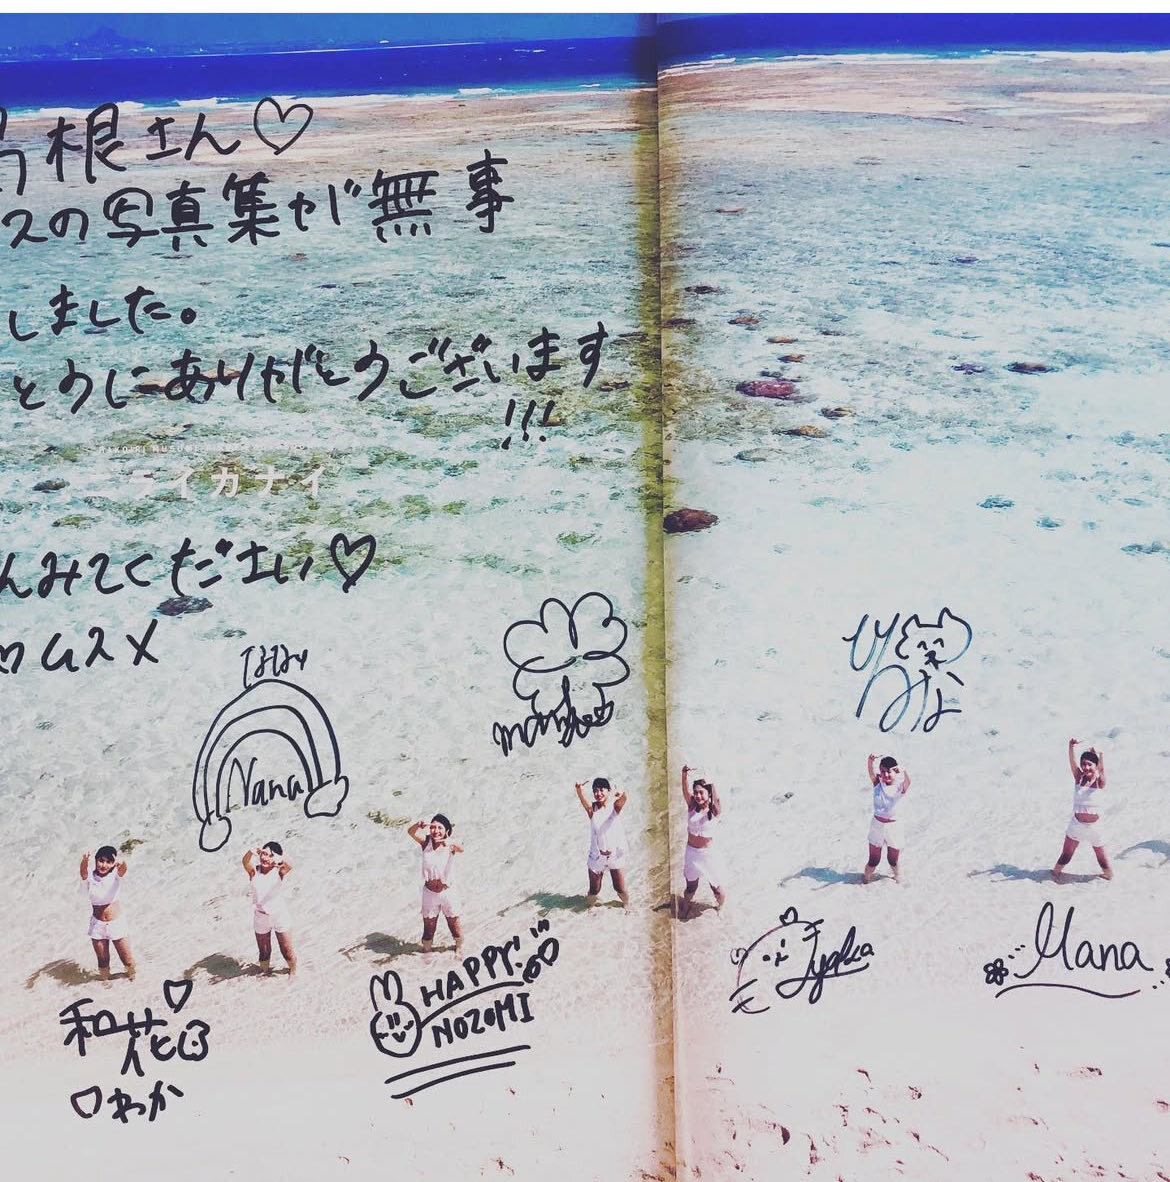 根さん♡
スの写真集がが無事
しました。
とうにありがとうございます
!!!
イカナイ
んみてください♡
ムスメ
Nana
ひな
和花
♡わか
HAPPY!
NOZOMI
Mana